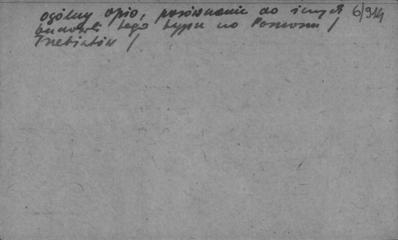 ogólny opis, porównanie do innych 6/314
budowli tego typu na Pomorzu /
Trzebiatów /